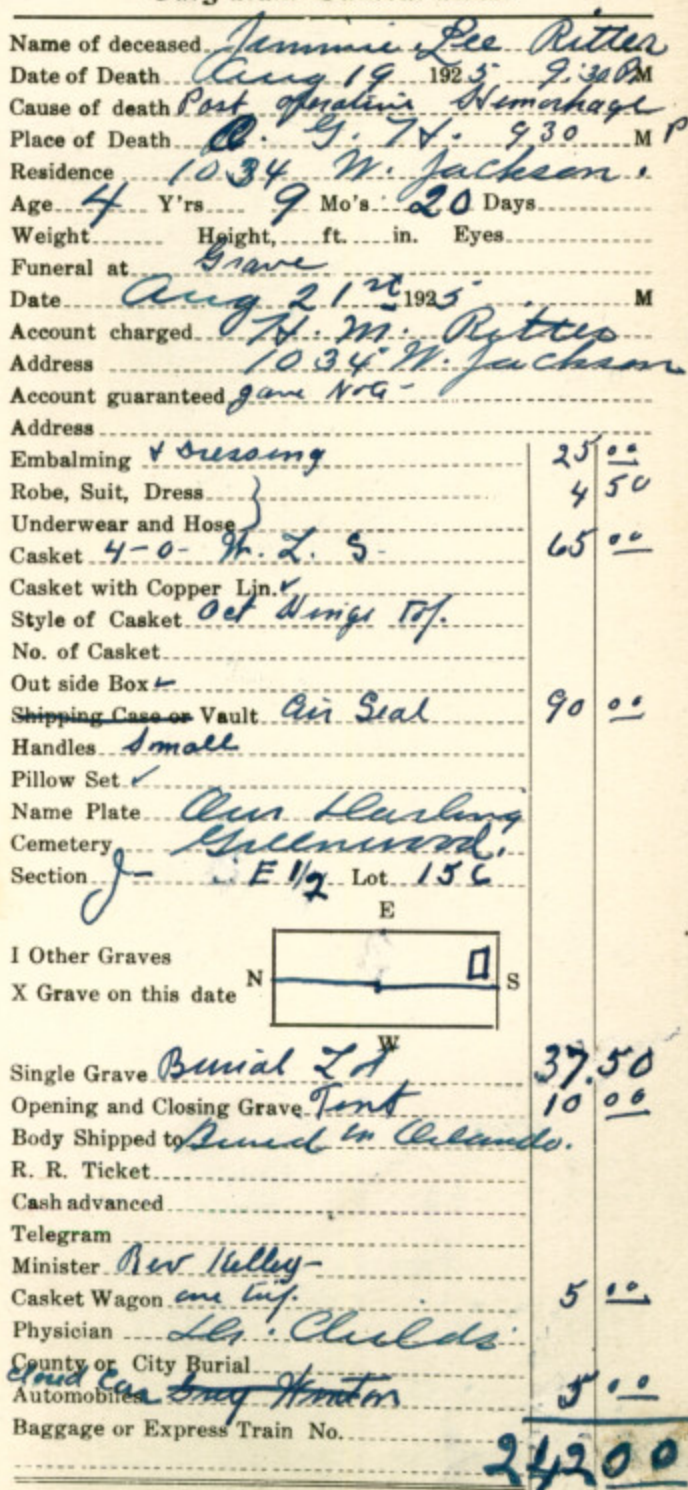 Name of deceased Jimmie Lee Ritter
Date of Death Aug 19 1925 9:30 PM
Cause of death Post operative Hemorhage
Place of Death O. G. H. 930 M P
Residence 1034 W. Jackson.
Age 4 Y'rs 9 Mo's 20 Days
Weight Height, ft. in. Eyes
Funeral at Grave
Date Aug 21st 1925 M
Account charged H. M. Ritter
Address 1034 W. Jackson
Account guaranteed gave Note-
Address
Embalming & Dressing 25 00
Robe, Suit, Dress 4 50
Underwear and Hose
Casket 4-0- W. L. S- 65 00
Casket with Copper Lin. ✓
Style of Casket Oct Hinge Top.
No. of Casket
Out side Box ✓
Shipping Case or Vault Air Seal 90 00
Handles Small
Pillow Set ✓
Name Plate Our Darling
Cemetery Greenwood.
Section J- E 1/2 Lot 156
E
I Other Graves
N S
X Grave on this date
W
Single Grave Burial Lot 37.50
Opening and Closing Grave Tent 10 00
Body Shipped to Buried in Orlando.
R. R. Ticket
Cash advanced
Telegram
Minister Rev Kelley-
Casket Wagon one 5 00
Physician Dr. Childs
County or City Burial
Closed Car
Automobiles Gray Winton 5 00
Baggage or Express Train No.
242 00